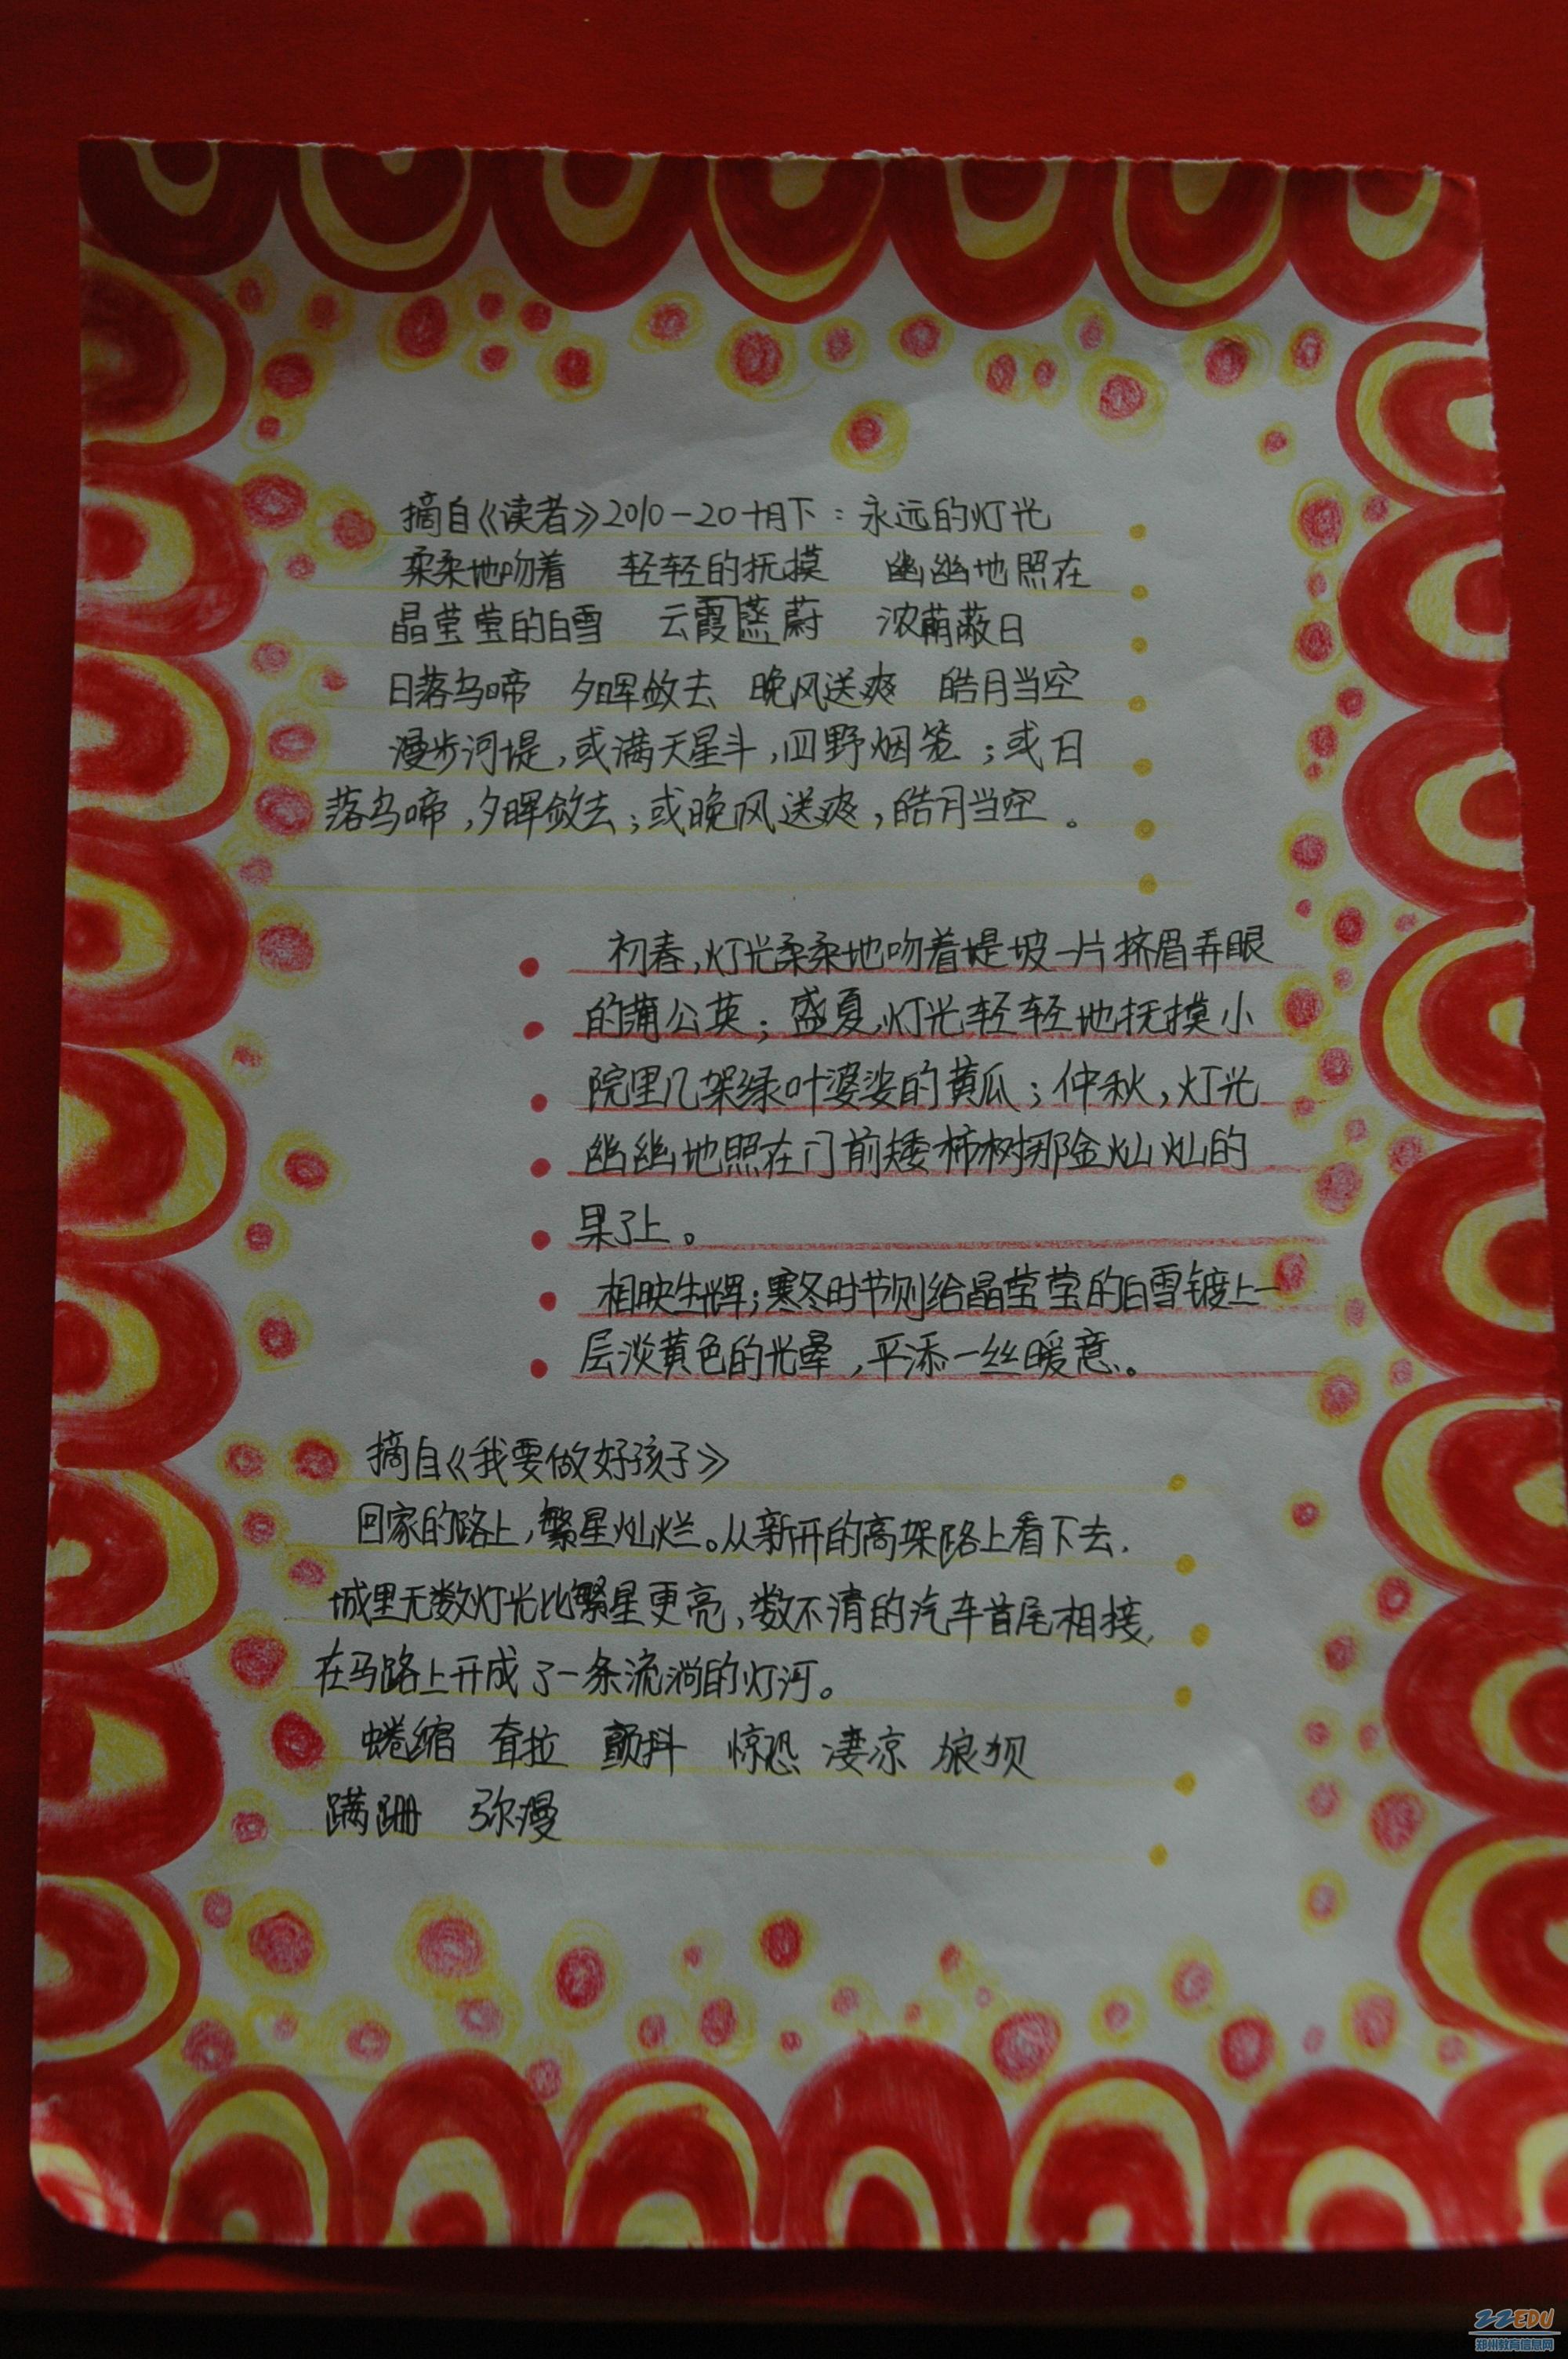 摘自《读者》2010-20十月下：永远的灯光
柔柔地吻着　轻轻的抚摸　幽幽地照在
晶莹莹的白雪　云霞蒸蔚　浓荫蔽日
日落乌啼　夕晖敛去　晚风送爽　皓月当空
漫步河堤，或满天星斗，四野烟笼；或日
落乌啼，夕晖敛去；或晚风送爽，皓月当空。
初春，灯光柔柔地吻着堤坡一片挤眉弄眼
的蒲公英；盛夏，灯光轻轻地抚摸小
院里几架绿叶婆娑的黄瓜；仲秋，灯光
幽幽地照在门前矮柿树那金灿灿的
果子上。
相映生辉；寒冬时节则给晶莹莹的白雪镀上一
层淡黄色的光晕，平添一丝暖意。
摘自《我要做好孩子》
回家的路上，繁星灿烂。从新开的高架路上看下去，
城里无数灯光比繁星更亮，数不清的汽车首尾相接，
在马路上开成了一条流淌的灯河。
蜷缩　耷拉　颤抖　惊恐　凄凉　狼狈
蹒跚　弥漫
ZZEDU
郑州教育信息网